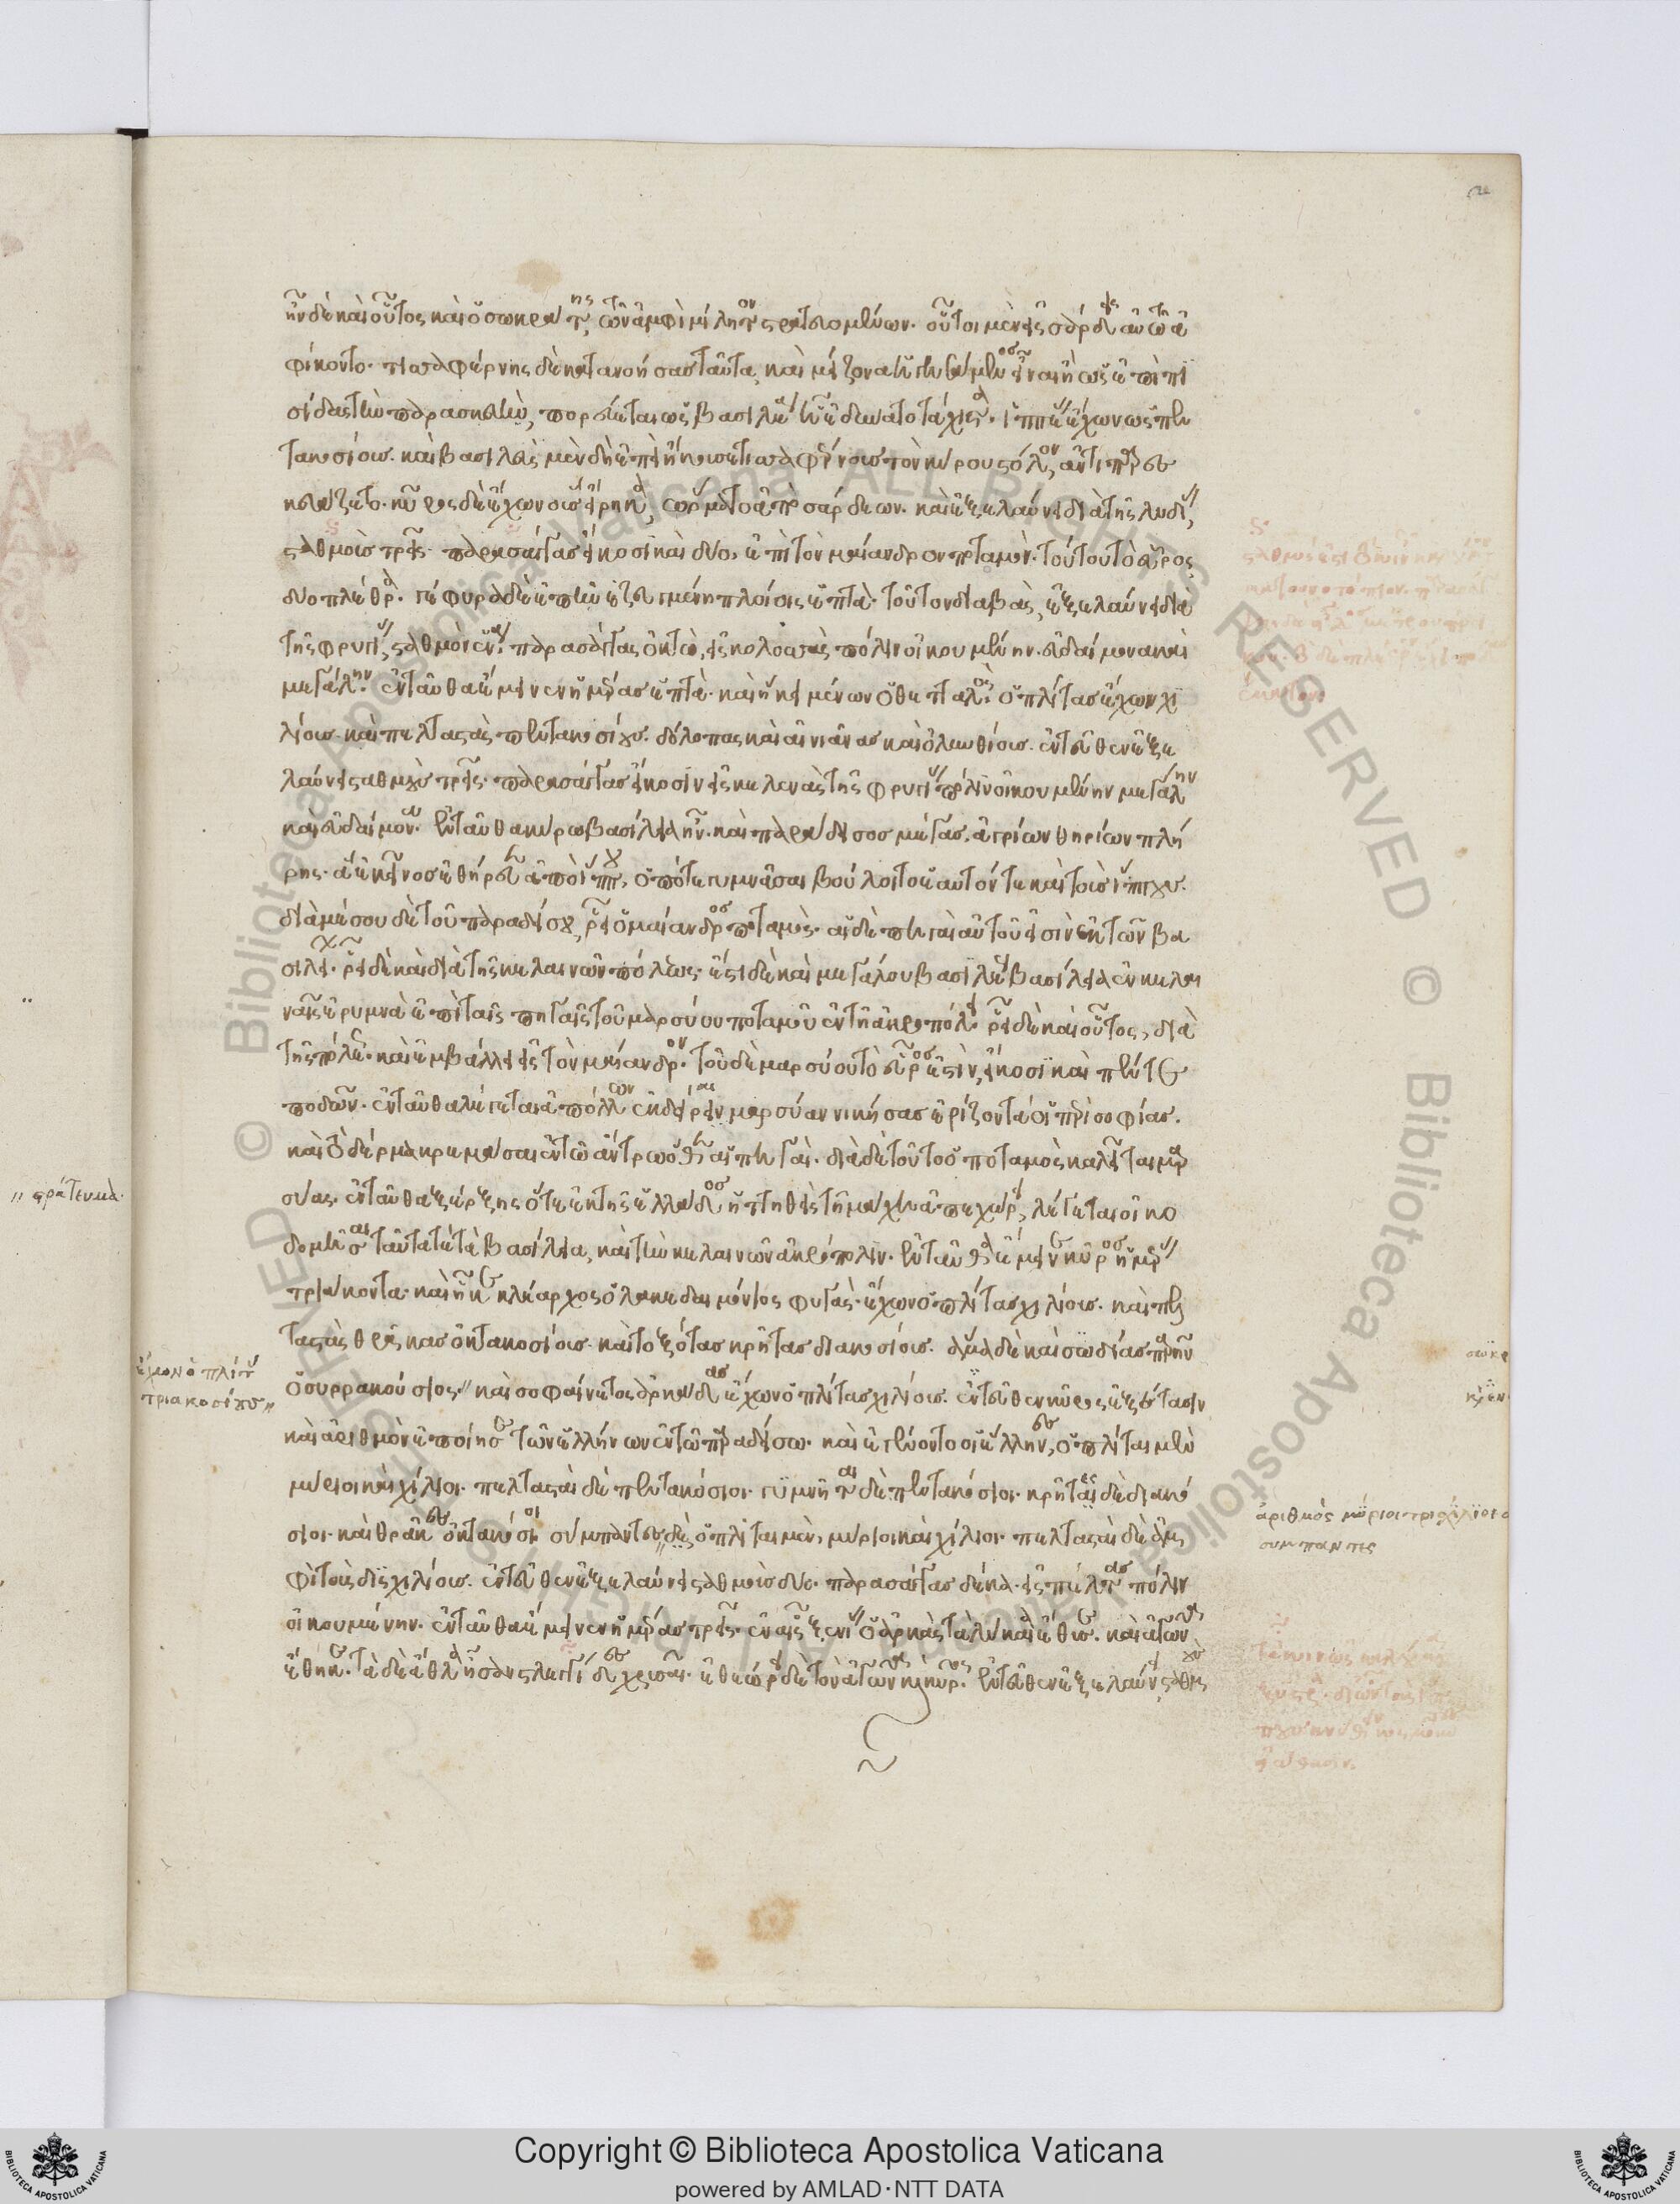 ἦν δὲ καὶ οὗτος καὶ ὁ σωκράτης, τῶν ἀμφὶ μίλητον στρατευομένων. οὗτοι μὲν εἰς σάρδεις αὐτῷ ἀ
φίκοντο. τισσαφέρνης δὲ κατανοήσας ταῦτα, καὶ μείζονα ἡγησάμενος εἶναι ἢ ὡς ἐπὶ πι
σίδας τὴν παρασκευὴν, πορεύεται ὡς βασιλέα ᾗ ἐδύνατο τάχιστα. ἱππέας ἔχων ὡς πεν
τακοσίους. καὶ βασιλεὺς μὲν δὴ ἐπεὶ ἤκουσε τισσαφέρνους τὸν κύρου στόλον, ἀντιπαρε
σκευάζετο. κῦρος δὲ ἔχων οὓς εἴρηκα, ὡρμᾶτο ἀπὸ σάρδεων. καὶ ἐξελαύνει διὰ τῆς λυδίας,
σταθμοὺς τρεῖς. παρασάγγας εἴκοσι καὶ δύο, ἐπὶ τὸν μαίανδρον ποταμόν. τούτου τὸ εὖρος
δύο πλέθρα. γέφυρα δὲ ἐπῆν ἐζευγμένη πλοίοις ἑπτά. τοῦτον διαβὰς, ἐξελαύνει διὰ
τῆς φρυγίας, σταθμὸν ἕνα. παρασάγγας ὀκτώ, εἰς κολοσσὰς πόλιν οἰκουμένην. εὐδαίμονα καὶ
μεγάλην. ἐνταῦθα ἔμεινεν ἡμέρας ἑπτά. καὶ ἧκε μένων ὁ θετταλὸς. ὁπλίτας ἔχων χι
λίους. καὶ πελταστὰς πεντακοσίους. δόλοπας καὶ αἰνιᾶνας καὶ ὀλυνθίους. ἐντεῦθεν ἐξε
λαύνει σταθμοὺς τρεῖς. παρασάγγας εἴκοσιν εἰς κελενὰς τῆς φρυγίας πόλιν οἰκουμένην μεγάλην
καὶ εὐδαίμονα. ἐνταῦθα κύρῳ βασίλεια ἦν. καὶ παράδεισος μέγας. ἀγρίων θηρίων πλή
ρης. ἃ ἐκεῖνος ἐθήρευεν ἀπὸ ἵππου, ὁπότε γυμνᾶσαι βούλοιτο ἑαυτόν τε καὶ τοὺς ἵππους.
διὰ μέσου δὲ τοῦ παραδείσου, ῥεῖ ὁ μαίανδρος ποταμός. αἱ δὲ πηγαὶ αὐτοῦ εἰσὶν ἐκ τῶν βα
σιλείων. ῥεῖ δὲ καὶ διὰ τῆς κελαινῶν πόλεως. ἔστι δὲ καὶ μεγάλου βασιλέως βασίλεια ἐν κελαι
ναῖς ἐρυμνὰ ἐπὶ ταῖς πηγαῖς τοῦ μαρσύου ποταμοῦ ἐν τῇ ἀκροπόλει. ῥεῖ δὲ καὶ οὗτος, διὰ
τῆς πόλεως. καὶ ἐμβάλλει εἰς τὸν μαίανδρον. τοῦ δὲ μαρσύου τὸ εὖρος ἐστὶν, εἴκοσι καὶ πέντε
ποδῶν. ἐνταῦθα λέγεται ἀπόλλων ἐκδεῖραι μαρσύαν νικήσας ἐρίζοντά οἱ περὶ σοφίας.
καὶ τὸ δέρμα κρεμάσαι ἐν τῷ ἄντρῳ ὅθεν αἱ πηγαί. διὰ δὲ τοῦτο ὁ ποταμὸς καλεῖται μαρ
σύας. ἐνταῦθα ξέρξης ὅτε ἐκ τῆς ἑλλάδος ἡττηθεὶς τῇ μάχῃ ἀπεχώρει, λέγεται οἰκο
δομῆσαι ταῦτά τε τὰ βασίλεια, καὶ τὴν κελαινῶν ἀκρόπολιν. ἐνταῦθα ἔμεινε κῦρος ἡμέρας
τριάκοντα. καὶ ἧκε κλέαρχος ὁ λακεδαιμόνιος φυγάς. ἔχων ὁπλίτας χιλίους. καὶ πελ
ταστὰς θρᾷκας ὀκτακοσίους. καὶ τοξότας κρῆτας διακοσίους. ἅμα δὲ καὶ σωσίας παρῆν
ὁ συρρακούσιος// καὶ σοφαίνετος ἀρκάδας ἔχων ὁπλίτας χιλίους. ἐντεῦθεν κῦρος ἐξέτασιν
καὶ ἀριθμὸν ἐποίησε τῶν ἑλλήνων ἐν τῷ παραδείσῳ. καὶ ἐγένοντο οἱ ἕλληνες, ὁπλῖται μὲν
μύριοι καὶ χίλιοι. πελτασταὶ δὲ πεντακόσιοι. γυμνῆται δὲ πεντακόσιοι. κρῆτες δὲ διακό
σιοι. καὶ θρᾷκες ὀκτακόσιοι σύμπαντες δὲ ὁπλῖται μὲν, μύριοι καὶ χίλιοι. πελτασταὶ δὲ ἀμ
φὶ τοὺς δισχιλίους. ἐντεῦθεν ἐξελαύνει σταθμοὺς δύο. παρασάγγας δέκα. εἰς πέλτας πόλιν
οἰκουμένην. ἐνταῦθα ἔμεινεν ἡμέρας τρεῖς. ἐν αἷς ξενίας ὁ ἀρκὰς τὰ λύκαια ἔθυσε. καὶ ἀγῶνα
ἔθηκε. τὰ δὲ ἆθλα ἦσαν στλεγγίδες χρυσαῖ. ἐθεώρει δὲ τὸν ἀγῶνα καὶ κῦρος. ἐντεῦθεν ἐξελαύνει σταθμοὺς
// στράτευμα.
ἔχων ὁπλίτας
τριακοσίους //
ἀριθμὸς μύριοι τρισχίλιοι
συμπαντες
Copyright © Biblioteca Apostolica Vaticana
powered by AMLAD·NTT DATA